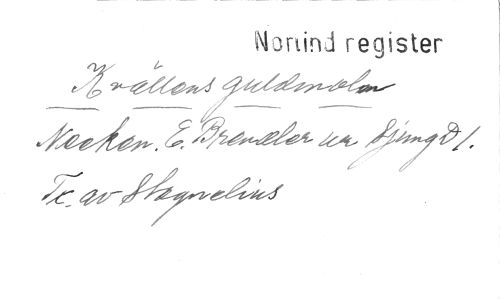 Norlind register
Kvällens guldmoln
Necken. E. Brendler ur Sjung D/.
Tx. av Stagnelius